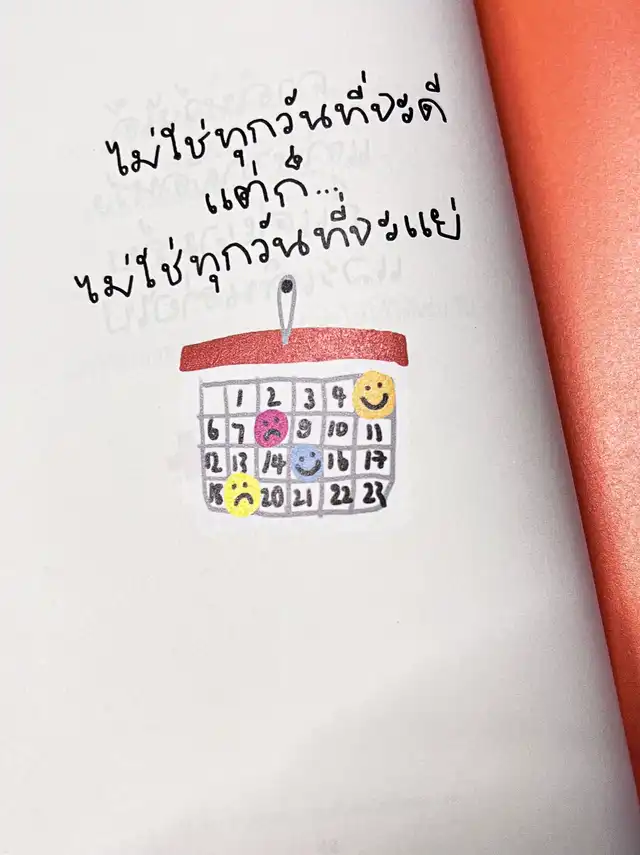 ไม่ใช่ทุกวันที่จะดี
แต่ก็...
ไม่ใช่ทุกวันที่จะแย่
1 2 3 4
6 7 9 10 11
12 13 14 16 17
18 20 21 22 23